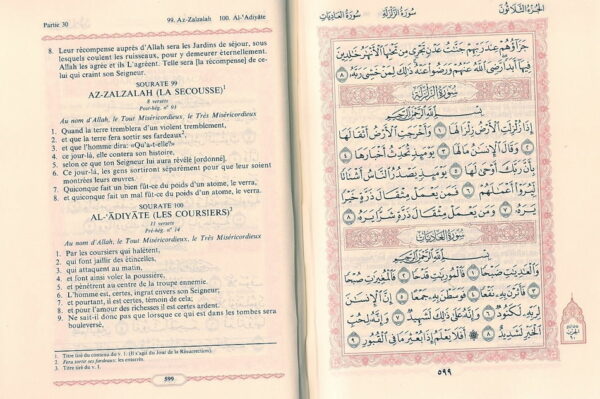 Partie 30
99. Az-Zalzalah 100. Al-'Adiyâte
8. Leur récompense auprès d'Allah sera les Jardins de séjour, sous
lesquels coulent les ruisseaux, pour y demeurer éternellement.
Allah les agrée et ils L'agréent. Telle sera [la récompense] de ce-
lui qui craint son Seigneur.
SOURATE 99
AZ-ZALZALAH (LA SECOUSSE)¹
8 versets
Post-hég. n° 93
Au nom d'Allah, le Tout Miséricordieux, le Très Miséricordieux
1. Quand la terre tremblera d'un violent tremblement,
2. et que la terre fera sortir ses fardeaux²,
3. et que l'homme dira: «Qu'a-t-elle?»
4. ce jour-là, elle contera son histoire,
5. selon ce que ton Seigneur lui aura révélé [ordonné].
6. Ce jour-là, les gens sortiront séparément pour que leur soient
montrées leurs œuvres.
7. Quiconque fait un bien fût-ce du poids d'un atome, le verra,
8. et quiconque fait un mal fût-ce du poids d'un atome, le verra.
SOURATE 100
AL-'ĀDIYĀTE (LES COURSIERS)³
11 versets
Pré-hég. n° 14
Au nom d'Allah, le Tout Miséricordieux, le Très Miséricordieux
1. Par les coursiers qui halètent,
2. qui font jaillir des étincelles,
3. qui attaquent au matin,
4. et font ainsi voler la poussière,
5. et pénètrent au centre de la troupe ennemie.
6. L'homme est, certes, ingrat envers son Seigneur;
7. et pourtant, il est certes, témoin de cela;
8. et pour l'amour des richesses il est certes ardent.
9. Ne sait-il donc pas que lorsque ce qui est dans les tombes sera
bouleversé,
1. Titre tiré du contenu du v. 1. (Il s'agit du Jour de la Résurrection).
2. Fera sortir ses fardeaux: les enterrés.
3. Titre tiré du v. 1.
599
الجزء الثلاثون
سورة الزلزلة
سورة العاديات
جَزَآؤُهُمْ عِندَ رَبِّهِمْ جَنَّٰتُ عَدْنٍ تَجْرِى مِن تَحْتِهَا ٱلْأَنْهَٰرُ خَٰلِدِينَ
فِيهَآ أَبَدًا رَّضِىَ ٱللَّهُ عَنْهُمْ وَرَضُوا۟ عَنْهُ ذَٰلِكَ لِمَنْ خَشِىَ رَبَّهُۥ ٨
سورة الزلزلة
بِسْمِ ٱللَّهِ ٱلرَّحْمَٰنِ ٱلرَّحِيمِ
إِذَا زُلْزِلَتِ ٱلْأَرْضُ زِلْزَالَهَا ١ وَأَخْرَجَتِ ٱلْأَرْضُ أَثْقَالَهَا
٢ وَقَالَ ٱلْإِنسَٰنُ مَا لَهَا ٣ يَوْمَئِذٍ تُحَدِّثُ أَخْبَارَهَا ٤
بِأَنَّ رَبَّكَ أَوْحَىٰ لَهَا ٥ يَوْمَئِذٍ يَصْدُرُ ٱلنَّاسُ أَشْتَاتًا
لِّيُرَوْا۟ أَعْمَٰلَهُمْ ٦ فَمَن يَعْمَلْ مِثْقَالَ ذَرَّةٍ خَيْرًا
يَرَهُۥ ٧ وَمَن يَعْمَلْ مِثْقَالَ ذَرَّةٍ شَرًّا يَرَهُۥ ٨
سورة العاديات
بِسْمِ ٱللَّهِ ٱلرَّحْمَٰنِ ٱلرَّحِيمِ
وَٱلْعَٰدِيَٰتِ ضَبْحًا ١ فَٱلْمُورِيَٰتِ قَدْحًا ٢ فَٱلْمُغِيرَٰتِ صُبْحًا
٣ فَأَثَرْنَ بِهِۦ نَقْعًا ٤ فَوَسَطْنَ بِهِۦ جَمْعًا ٥ إِنَّ ٱلْإِنسَٰنَ
لِرَبِّهِۦ لَكَنُودٌ ٦ وَإِنَّهُۥ عَلَىٰ ذَٰلِكَ لَشَهِيدٌ ٧ وَإِنَّهُۥ لِحُبِّ
ٱلْخَيْرِ لَشَدِيدٌ ٨ أَفَلَا يَعْلَمُ إِذَا بُعْثِرَ مَا فِى ٱلْقُبُورِ ٩
٥٩٩